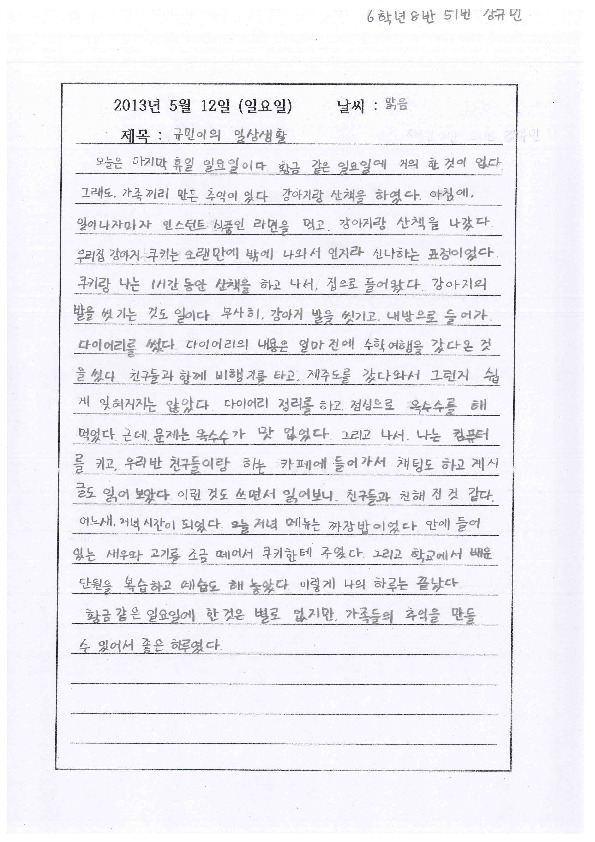 6학년 8반 51번 상규민
2013년 5월 12일 (일요일) 날씨 : 맑음
제목 : 규민이의 일상생활
오늘은 마지막 휴일 일요일이다 황금 같은 일요일에 거의 한 것이 없다.
그래도, 가족끼리 만든 추억이 있다. 강아지랑 산책을 하였다. 아침에,
일어나자마자 인스턴트 식품인 라면을 먹고, 강아지랑 산책을 나갔다.
우리집 강아지 쿠키는 오랜만에 밖에 나와서 인지라 신나하는 표정이었다.
쿠키랑 나는 1시간 동안 산책을 하고 나서, 집으로 들어왔다. 강아지의
발을 씻기는 것도 일이다. 무사히, 강아지 발을 씻기고, 내방으로 들어가,
다이어리를 썼다. 다이어리의 내용은 얼마 전에 수학여행을 갔다온 것
을 썼다. 친구들과 함께 비행기를 타고, 제주도를 갔다와서 그런지 쉽
게 잊혀지지는 않았다. 다이어리 정리를 하고, 점심으로 옥수수를 해
먹었다. 근데, 문제는 옥수수가 맛 없었다. 그리고 나서, 나는 컴퓨터
를 키고, 우리반 친구들이랑 하는 카페에 들어가서 채팅도 하고 게시
글도 읽어 보았다. 이런 것도 쓰면서 읽어보니, 친구들과 친해 진 것 같다.
어느새, 저녁 시간이 되었다. 오늘 저녁 메뉴는 짜장밥이었다. 안에 들어
있는 새우와 고기를 조금 떼어서 쿠키한테 주었다. 그리고 학교에서 배운
단원을 복습하고 예습도 해 놓았다. 이렇게 나의 하루는 끝났다
황금 같은 일요일에 한 것은 별로 없지만, 가족들의 추억을 만들
수 있어서 좋은 하루였다.